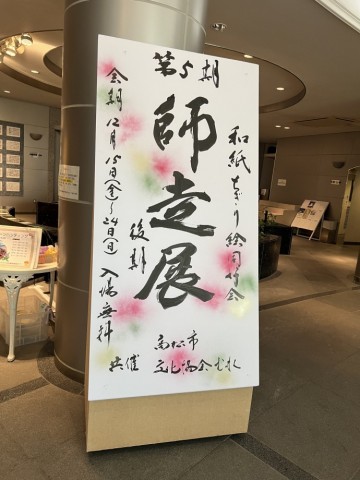 第5期
和紙ちぎり絵同好会
師走展
後期
会期 12月15日(金)～24日(日)
入場無料
共催
高松市
文化協会